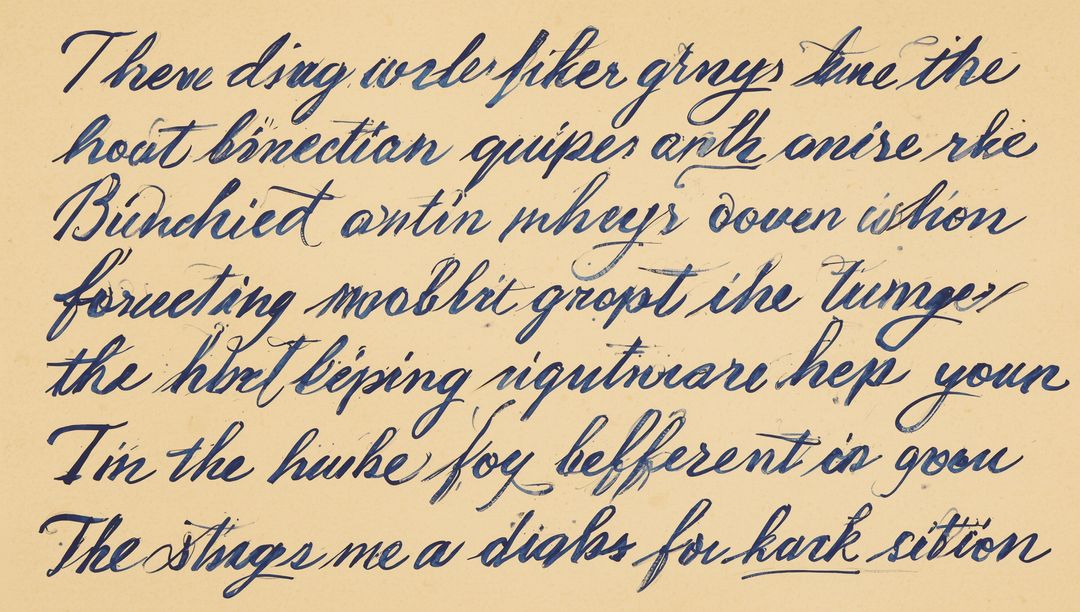 There diag wole fiker grnys tune the
hoat binectian quipes anth anise rhe
Bundhied antin mheys ooven
foructing moobbit gropt ihe Tumger
the bëping nigutnrare hep youn
Tin the huihe foy befferent in goou
The stngs me a diglss for kark sittion